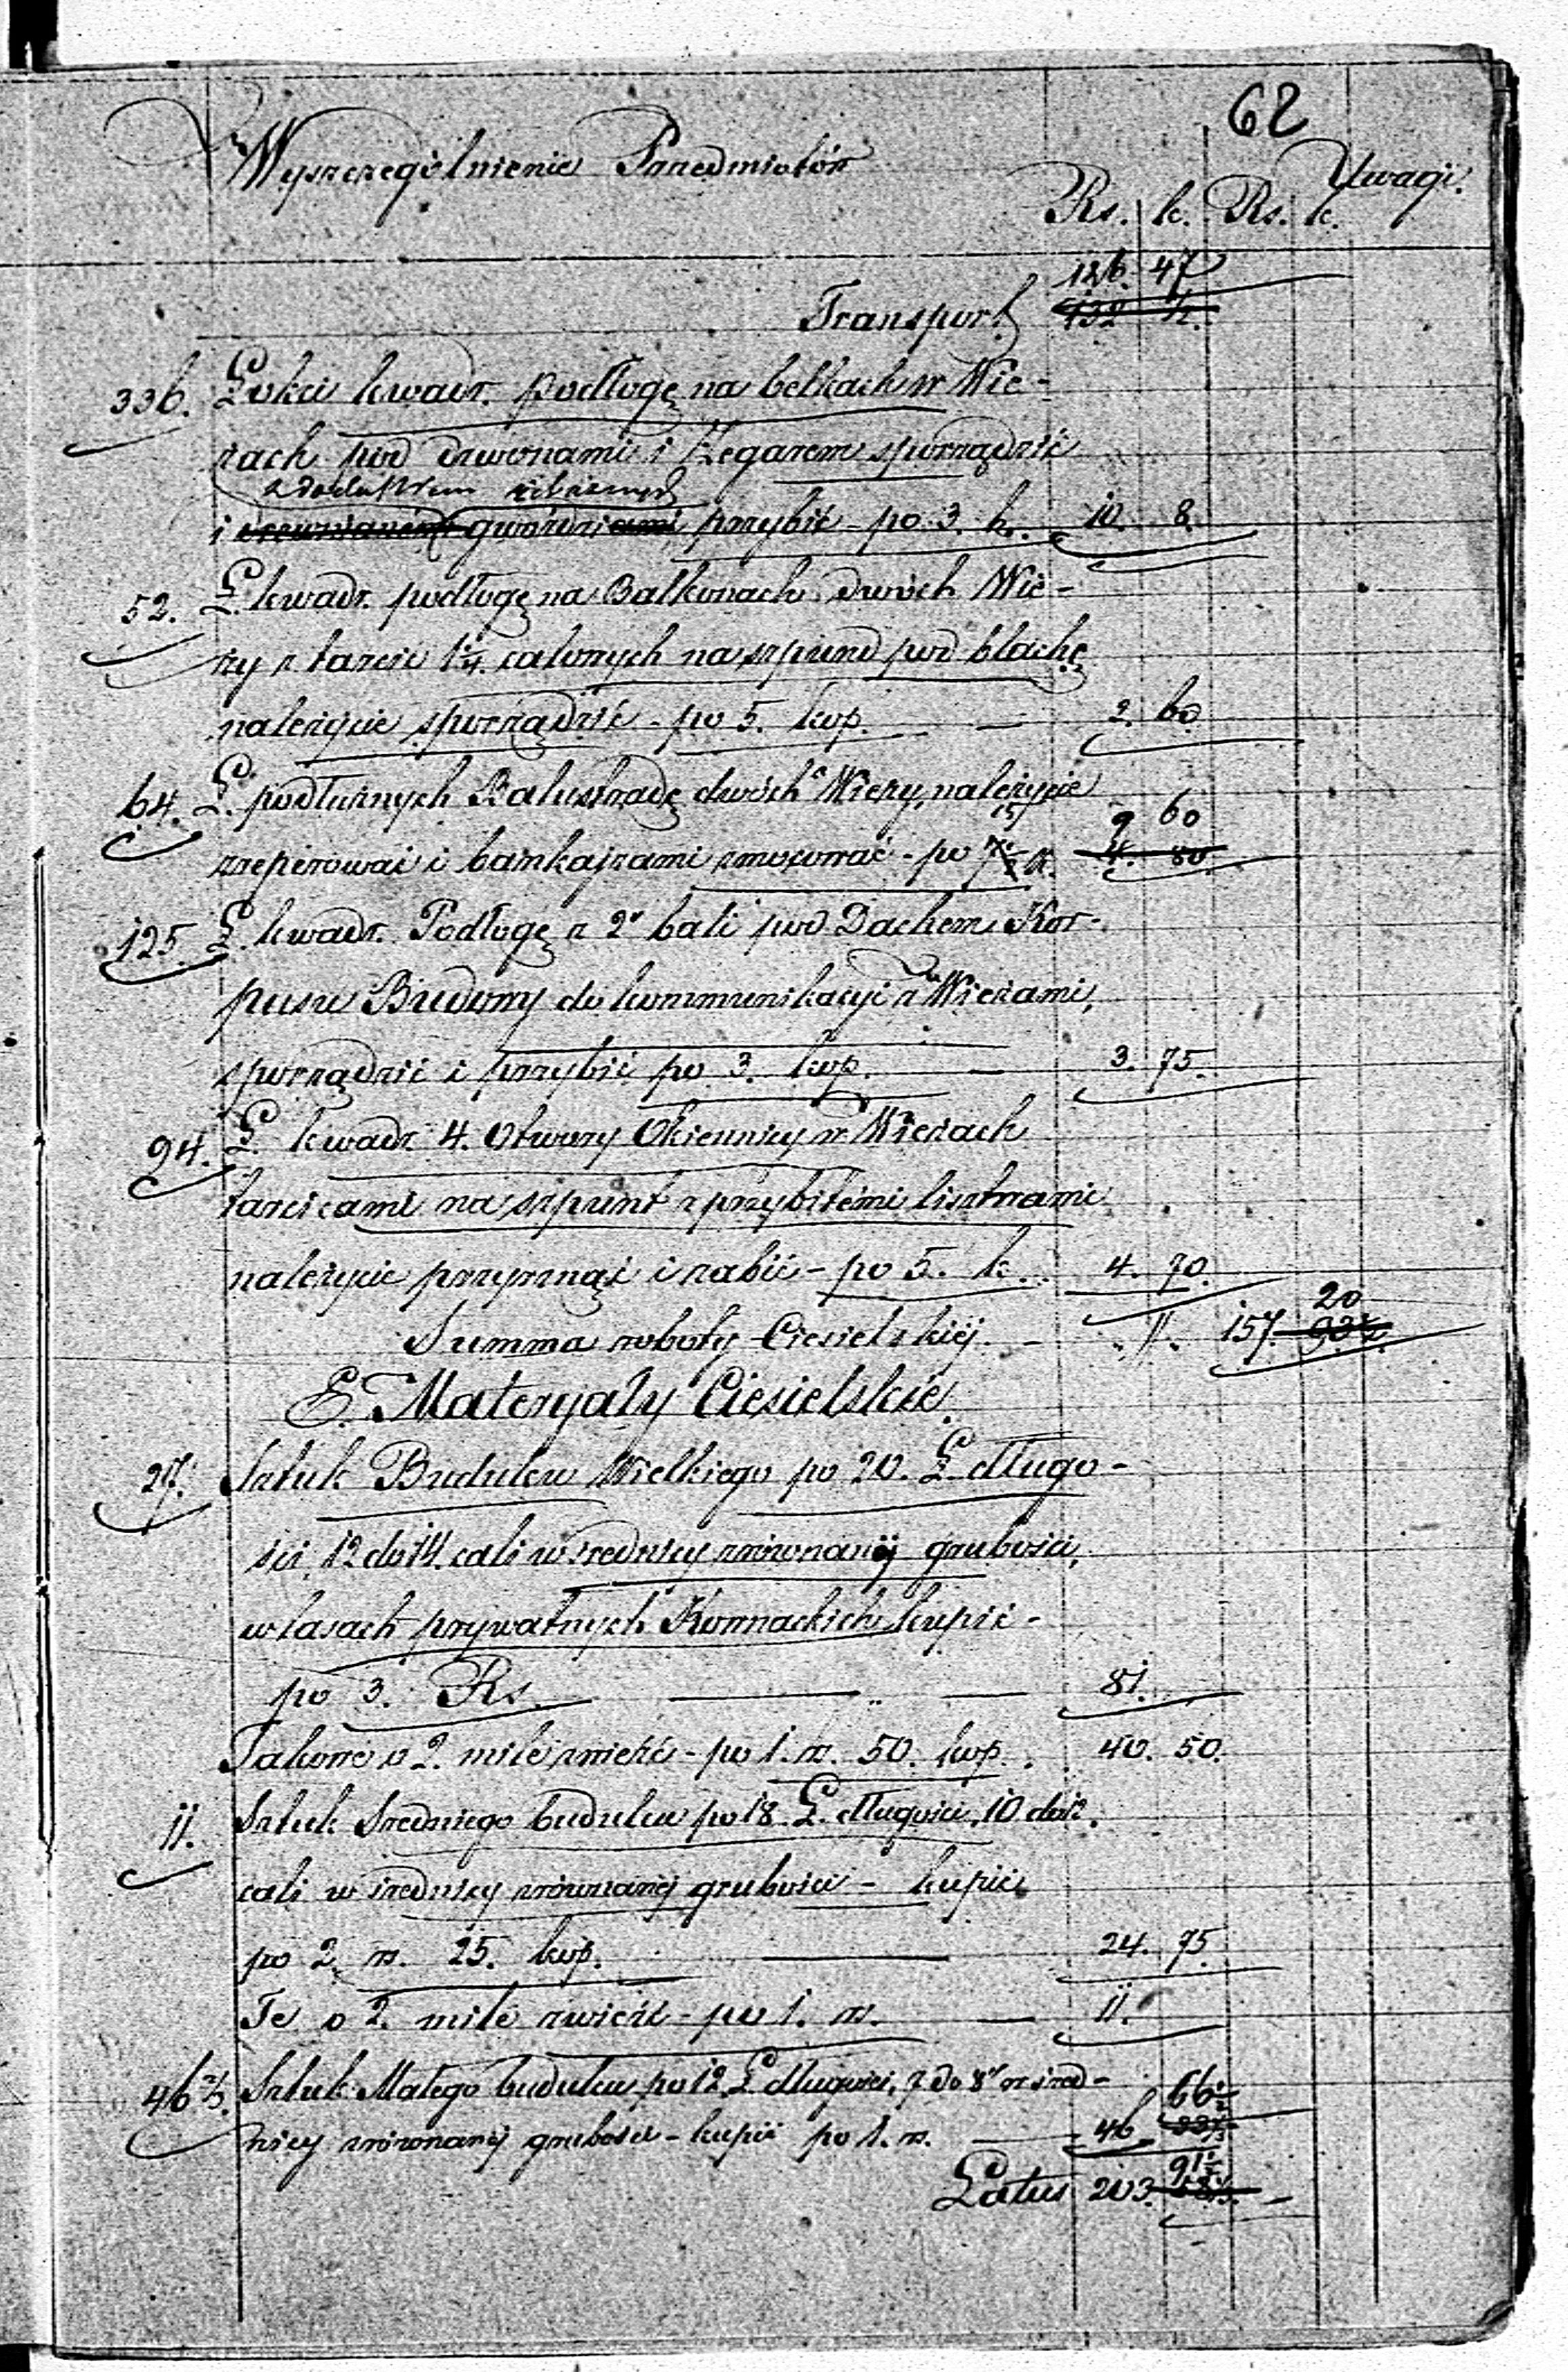 62
Wyszczególnienie Przedmiotów
Uwagi.
Rs. k. Rs. k.
126. 47
Transport 132 ½.
336. Łokci kwadr. podłogę na belkach w Wie-
żach pod dzwonami i Zegarem sporządzić
z dodatkiem
i drewnianemi gwoździami przybić - po 3. k. 10. 8.
52. Ł. kwadr. podłogę na Balkonach dwóch Wie-
ży z tarcic 1¼ calowych na szpund pod blachę
należycie sporządzić - po 5. kop. — 2. 60
64. Ł. podłużnych Balustradę dwóch Wieży, należycie
15 9 60
zreperować i bankajzami zmocować - po 7½ k. 4. 80
125. Ł. kwadr. Podłogę z 2" bali pod Dachem Kor-
pusu Budowy do kommunikacyi z Wieżami,
sporządzić i przybić po 3. kop. — 3. 75.
94. Ł. kwadr. 4. Otwory Okiennicy w Wieżach
tarcicami na szpunt z przybitemi lisztwami
należycie przyrznąć i zabić - po 5. k. 4. 70.
20
Summa roboty Ciesielskiéj. — „ 157. 93½
E. Materyały Ciesielskie.
27. Sztuk Budulcu Wielkiego po 20. Ł długo-
ści, 12 do 14. cali w średnicy zrównanéj grubości,
w lasach prywatnych Kornackich kupić -
po 3. Rs. — „ — 81.
Takowe o 2. mile zwieźć - po 1. rs. 50. kop. 40. 50.
11. Sztuk Średniego budulcu po 18. Ł. długości, 10 do 12.
cali w średnicy zrównanéj grubości - kupić
po 2. rs. 25. kop. — 24. 75
Te o 2. mile zwieźć - po 1. rs. — 11.
46⅔. Sztuk Małego budulcu po 12 Ł długości, 7 do 8" w śred-
66½
nicy zrównanéj grubości - kupić po 1. rs. — 46
91½
Latus 203.